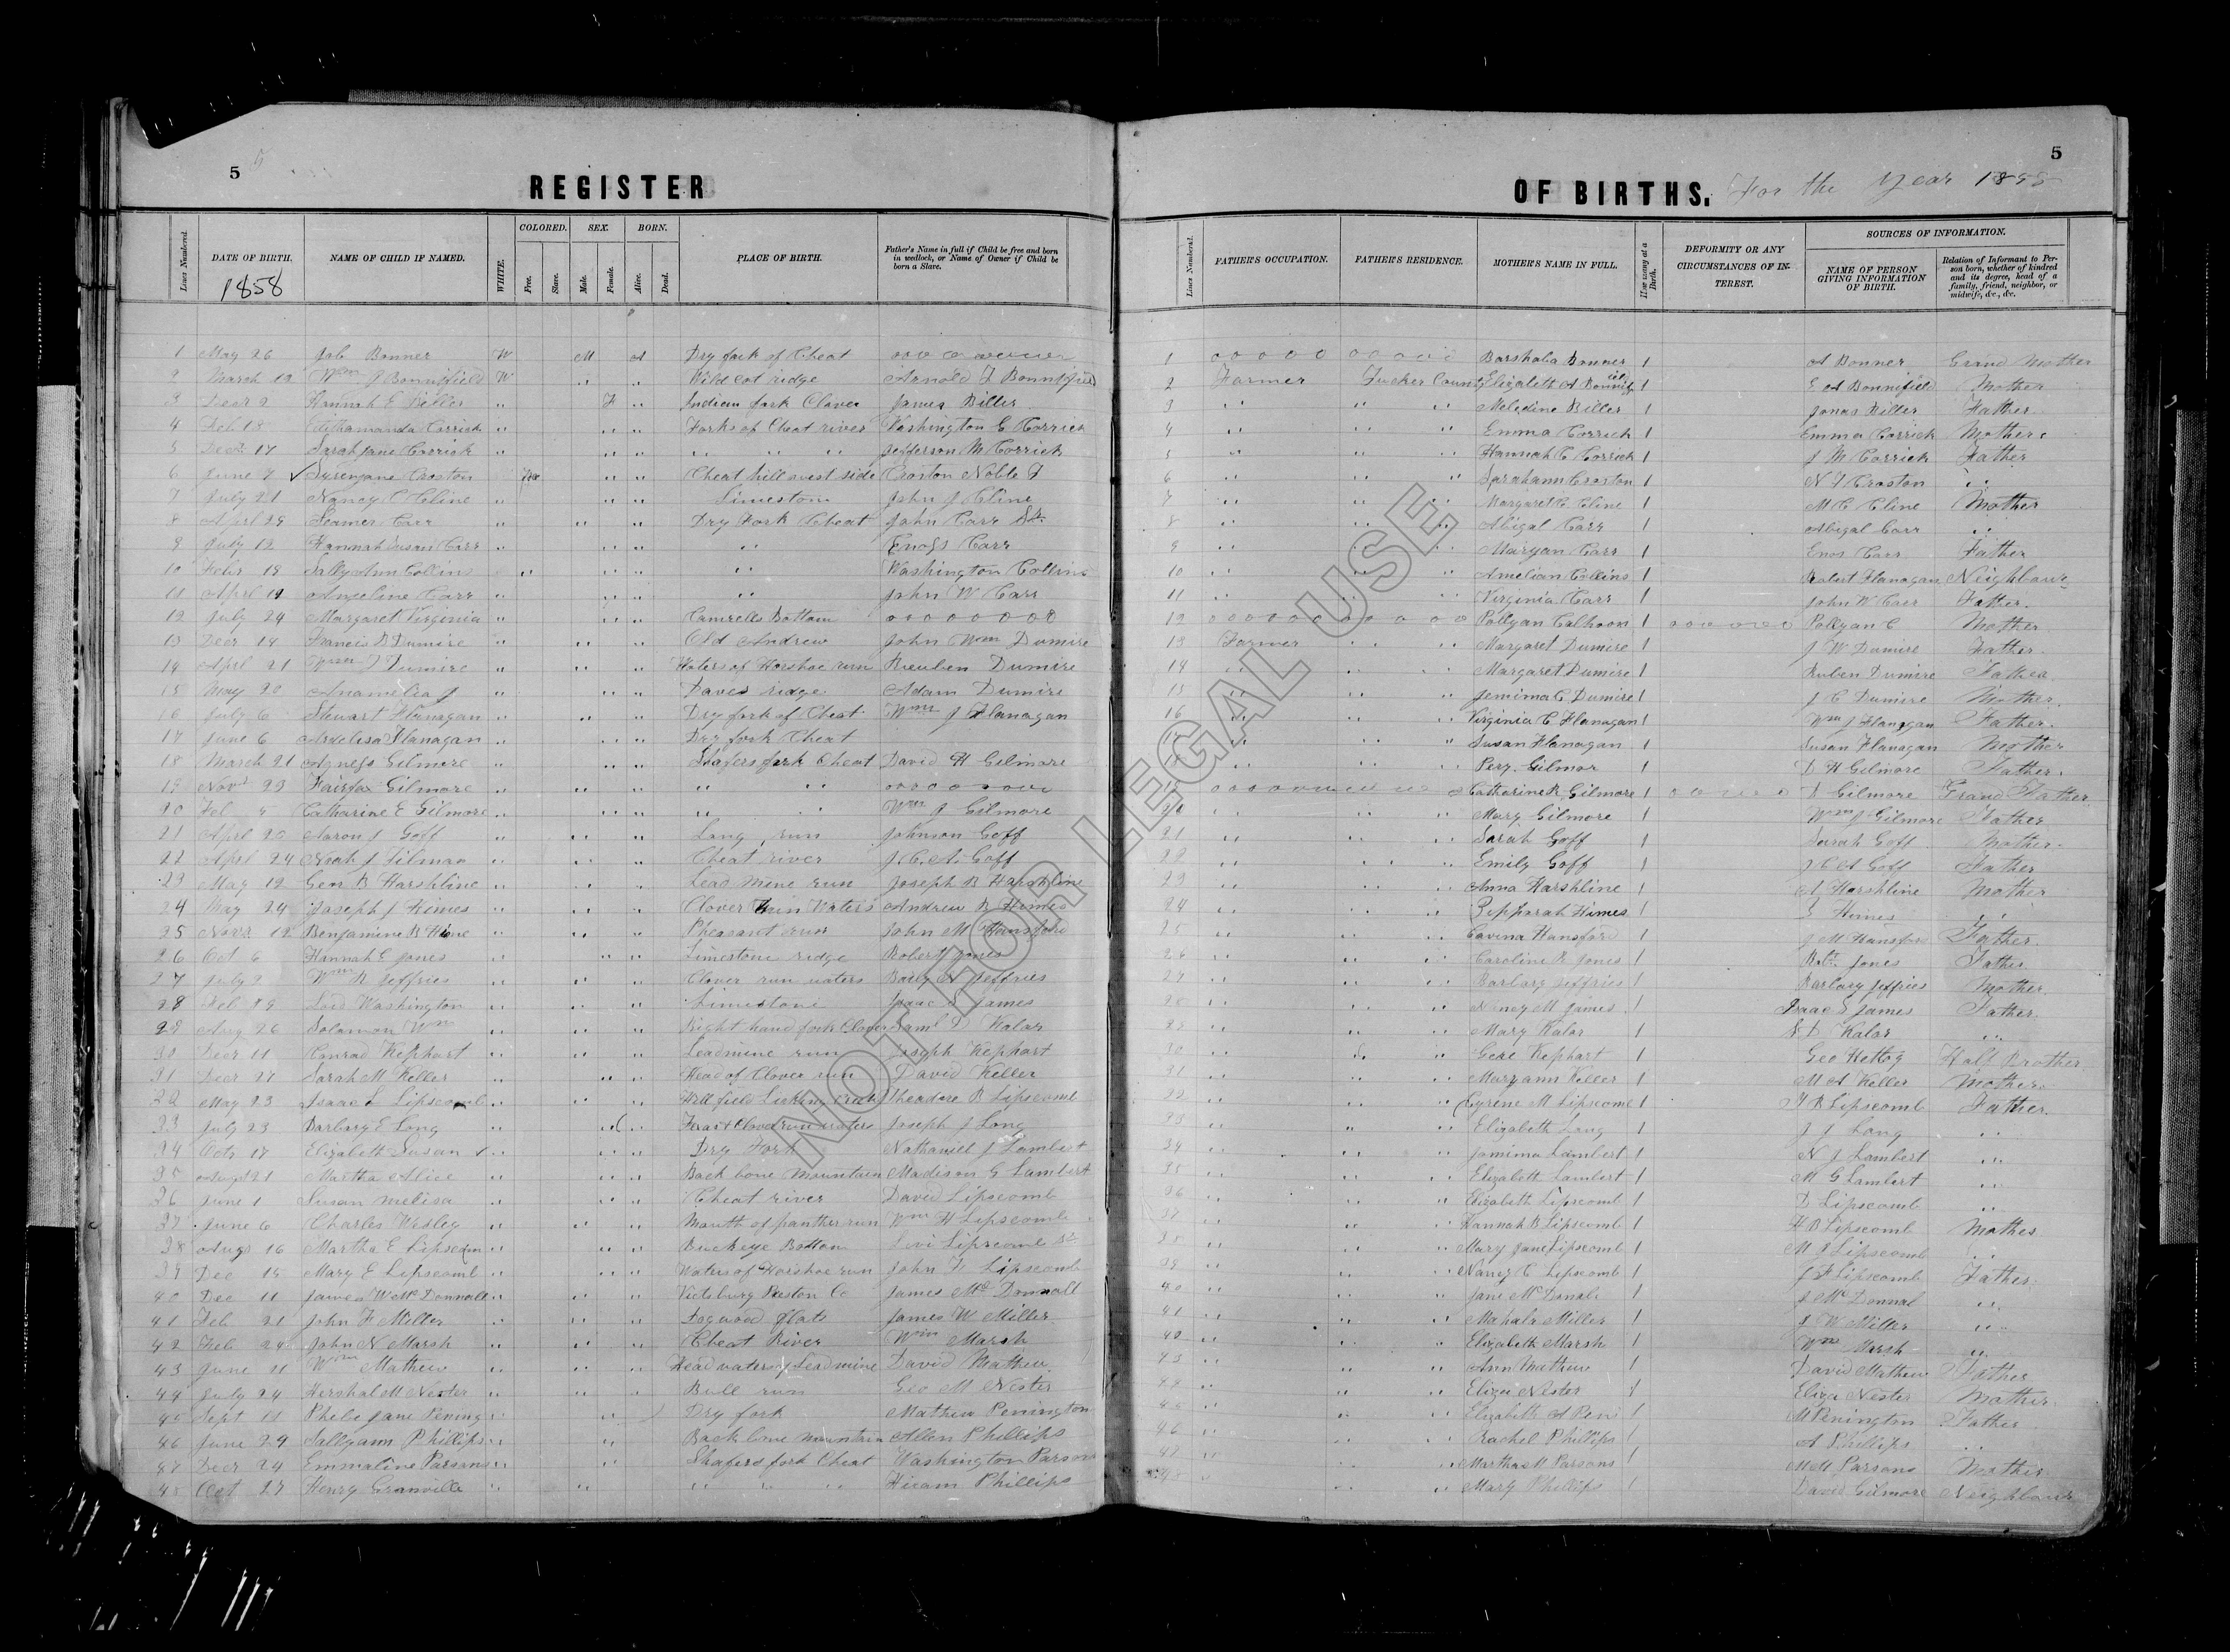 5
5
REGISTER
OF BIRTHS. For the year 1855
Lines Numbered.
DATE OF BIRTH.
1858
NAME OF CHILD IF NAMED.
WHITE.
COLORED.
Free.
Slave.
SEX.
Male.
Female.
BORN.
Alive.
Dead.
PLACE OF BIRTH.
Father's Name in full if Child be free and born in wedlock, or Name of Owner if Child be born a Slave.
Lines Numbered.
FATHER'S OCCUPATION.
FATHER'S RESIDENCE.
MOTHER'S NAME IN FULL.
How many at a Birth.
DEFORMITY OR ANY CIRCUMSTANCES OF INTEREST.
SOURCES OF INFORMATION.
NAME OF PERSON GIVING INFORMATION OF BIRTH.
Relation of Informant to Person born, whether of kindred and its degree, head of a family, friend, neighbor, or midwife, &c., &c.
1 May 26 Job Bonner W M A Dry fork of Cheat 1 Barshaba Bonner 1 A Bonner Grand Mother
2 March 12 Wm J Bonnifield W " " Wild cat ridge Arnold T Bonnifield 2 Farmer Tucker County Elizabeth A Bonnifield 1 E A Bonnifield Mother
3 Decr 2 Hannah E Biller " F " Indian fork Clover James Biller 3 " " " Meledine Biller 1 Jonas Biller Father
4 Feb 13 Corrick " " " Forks of Cheat river Washington G Corrick 4 " " " Emma Corrick 1 Emma Corrick Mother
5 Decr 17 Sarah Jane Corrick " " " " " " Jefferson M Corrick 5 " " " Hannah C Corrick 1 J M Corrick Father
6 June 7 ✓ Syrenjane Croston Free " " Cheat hill west side Croston Noble T 6 " " " Sarahann Croston 1 N T Croston "
7 July 21 Nancy C Cline " " " Limestone John J Cline 7 " " " Margaret C Cline 1 M C Cline Mother
8 Aprl 29 Seamer Carr " " " Dry Fork Cheat John Carr Sr. 8 " " " Abigal Carr 1 Abigal Carr "
9 July 12 Hannah Susan Carr " " " " Enoss Carr 9 " " " Maryan Carr 1 Enos Carr Father
10 Febr 18 Sally Ann Collins " " " " Washington Collins 10 " " " Amelian Collins 1 Robert Flanagan Neighbour
11 Aprl 12 Angeline Carr " " " " John W Carr 11 " " " Virginia Carr 1 John W Carr Father
12 July 24 Margaret Virginia " " " Camrells Bottom o o o o o o o o 12 Pollyan Calhoon 1 o o o o o o Pollyan C Mother
13 Decr 14 Francis D Dumire " " " Old Andrew John Wm Dumire 13 Farmer " " Margaret Dumire 1 J W Dumire Father
14 Aprl 21 Wm J Dumire " " " Waters of Horshoe run Rieuben Dumire 14 " " " Margaret Dumire 1 Ruben Dumire Father
15 May 20 Anamelia J " " " Daves ridge Adam Dumire 15 " " " Jemima C Dumire 1 J C Dumire Mother
16 July 6 Stewart Flanagan " " " Dry fork of Cheat Wm J Flanagan 16 " " " Virginia C Flanagan 1 Wm J Flanagan Father
17 June 6 Ardelisa Flanagan " " " Dry fork Cheat 17 " " " Susan Flanagan 1 Susan Flanagan Mother
18 March 21 Agness Gilmore " " " Shafers fork Cheat David H Gilmore " " " Pery Gilmor 1 D H Gilmore Father
19 Novr 23 Fairfax Gilmore " " " " " Catharine R Gilmore 1 D Gilmore Grand Father
20 Feb 5 Catharine E Gilmore " " " " " Wm J Gilmore " " " Mary Gilmore 1 Wm J Gilmore Father
21 Aprl 20 Aaron J Goff " " " Long run Johnson Goff 21 " " " Sarah Goff 1 Sarah Goff Mother
22 Aprl 24 Noah J Filmao " " " Cheat river J. C. A. Goff 22 " " " Emily Goff 1 J C A Goff Father
23 May 12 Geo B Harshline " " " Lead mine run Joseph B Harshline 23 " " " Anna Harshline 1 A Harshline Mother
24 May 24 Joseph J Himes " " " Clover run Waters Andrew R Himes 24 " " " Zepparah Himes 1 Z Himes "
25 Novr 12 Benjamine B " " " Pheasant run John M Hansford 25 " " " Cavina Hansford J M Hansford Father
26 Oct 6 Hannah E Jones " " " Limestone ridge Robert Jones 26 " " " Caroline R Jones 1 Robt. Jones Father
27 July 2 Wm R Jeffries " " " Clover run waters Baily A Jeffries 27 " " " Barbary Jeffries 1 Barbary Jeffries Mother
28 Feb 22 Loid Washington " " " Limestone Isaac S James 28 " " " Nancy M James 1 Isaac S James Father
29 Aug 26 Solomon Wm " " " Right hand fork Clover Saml D Kalar 29 " " " Mary Kalar 1 S D Kalar "
30 Decr 11 Conrad Kephart " " " Leadmine run Joseph Kephart 30 " " " Kephart 1 Geo Half Brother
31 Decr 27 Sarah M Keller " " " Head of Clover run David Keller 31 " " " Maryann Keller 1 M A Keller Mother
32 May 23 Isaac L Lipscomb " " " Theadore R Lipscomb 32 " " " Cyrene M Lipscomb 1 T R Lipscomb Father
33 July 23 Barbary E Long " " Clover run waters Joseph J Long 33 " " " Elizabeth Long 1 J J Long "
34 Octr 17 Elizabeth Susan " " " Dry Fork Nathaniel J Lambert 34 " " " Jamima Lambert 1 N J Lambert "
35 Augst 21 Martha Alice " " " Back bone Mountain Madison G Lambert 35 " " " Elizabeth Lambert 1 M G Lambert "
36 June 1 Susan Melisa " " " Cheat river David Lipscomb 36 " " " Elizabeth Lipscomb 1 D Lipscomb "
37 June 6 Charles Wesley " " " Mouth of panther run Wm H Lipscomb 37 " " " Hannah B Lipscomb 1 H B Lipscomb Mother
38 Augs 16 Martha E Lipscom " " " Buckeye Bottom Levi Lipscomb Sr 38 " " " Mary Jane Lipscomb 1 M J Lipscomb "
39 Dec 15 Mary E Lipscomb " " " Waters of Horshoe run John F Lipscomb 39 " " " Nancy C Lipscomb 1 J F Lipscomb Father
40 Dec 11 James W McDonnall " " " Preston Co James McDonnall 40 " " " Jane McDonald 1 J McDonnal "
41 Feb 21 John F Miller " " " Dogwood flats James W Miller 41 " " " Mahala Miller 1 J W Miller "
42 Feb 24 John N Marsh " " " Cheat River Wm Marsh 42 " " " Elizabeth Marsh 1 Wm Marsh "
43 June 21 Wm Mathew " " " Head waters of Leadmine David Mathew 43 " " " Ann Mathew 1 David Mathew Father
44 July 24 Hershal M Nester " " " Bull run Geo M Nester 44 " " " Eliza Nester 1 Eliza Nester Mother
45 Sept 11 Phebe Jane Pening " " Dry fork Mathew Penington 45 " " " Elizabeth A Peni 1 M Penington Father
46 June 29 Sallyann Phillips " " Back bone Mountain Allen Phillips 46 " " " Rachel Phillips 1 A Phillips "
47 Decr 24 Emmaline Parsons " " Shafers fork Cheat Washington Parsons 47 " " " Martha M Parsons 1 M M Parsons Mother
48 Oct 27 Henry Granville " " " " " Hiram Phillips 48 " " " Mary Phillips 1 David Gilmore Neighbour
NOT FOR LEGAL USE